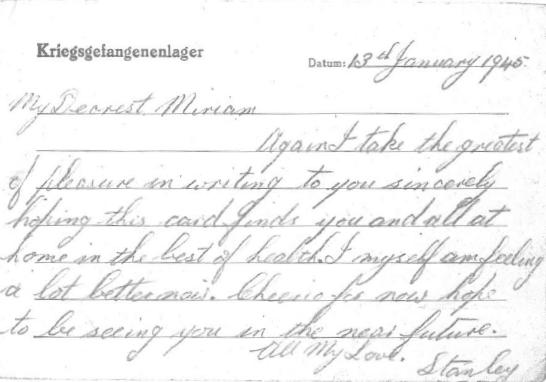 Kriegsgefangenenlager
Datum: 13rd January 1945.
My Dearest Miriam
Again I take the greatest
of pleasure in writing to you sincerely
hoping this card finds you and all at
home in the best of health. I myself am feeling
a lot better now. Cheerio for now hope
to be seeing you in the near future.
All My Love.
Stanley